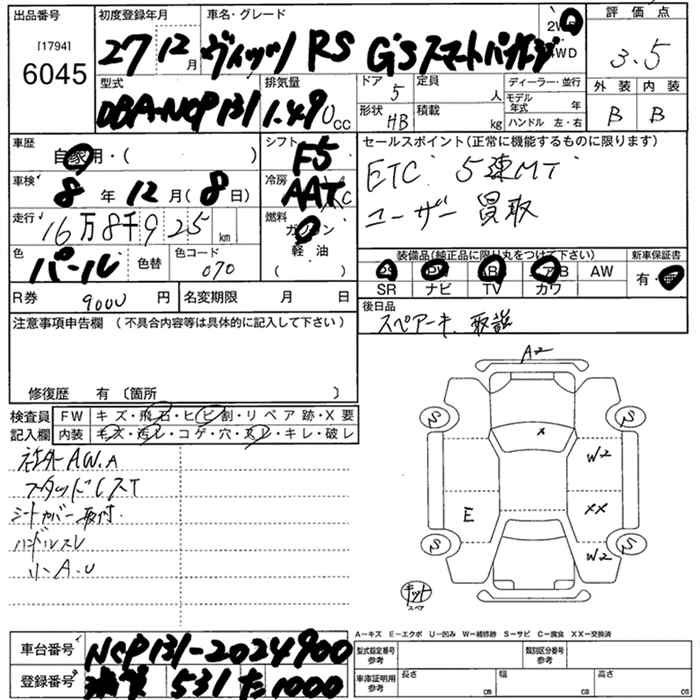 出品番号 初度登録年月 車名・グレード 評価点
[1794]
6045 27 12月 ヴィッツ RS G's スマートパッケージ 2WD 4WD 3.5
外装 内装
B B
型式 排気量 ドア 定員 ディーラー・並行
DBA-NCP131 1.490cc 5 人 モデル年式 年
形状 積載 ハンドル 左・右
HB kg
車歴 シフト セールスポイント(正常に機能するものに限ります)
自家用・( ) F5 ETC 5速MT
車検 冷房 ユーザー買取
8年12月(8日) AAC
走行 燃料
16万8千925km ガソリン
軽油
( )
装備品(純正品に限り丸をつけて下さい) 新車保証書
PS PW AB AW 有・無
SR ナビ TV カワ
色 色替 色コード
パール 070
R券 9000円 名変期限 月 日
後日品
スペアーキ、取説
注意事項申告欄(不具合内容等は具体的に記入して下さい)
修復歴 有〔箇所 〕
検査員 FW キズ・飛石・ヒビ割・リペア跡・X要
記入欄 内装 キズ・汚レ・コゲ・穴・スレ・キレ・破レ
社外AW.A
スタッドレスT
シートカバー取付
ハンドルスレ
小A.U
A2
S S
X
W2
E XX
W2
S S
キット
スペア
A-キズ E-エクボ U-凹み W-補修跡 S-サビ C-腐食 XX-交換済
車台番号 NCP131-2024900
登録番号 531 た 1000
型式指定番号 参考 類別区分番号 参考
車庫証明用 参考 長さ cm 幅 cm 高さ cm